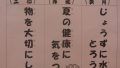 じょうずに水
とろう
夏の健康に
気をつ
物を大切にし